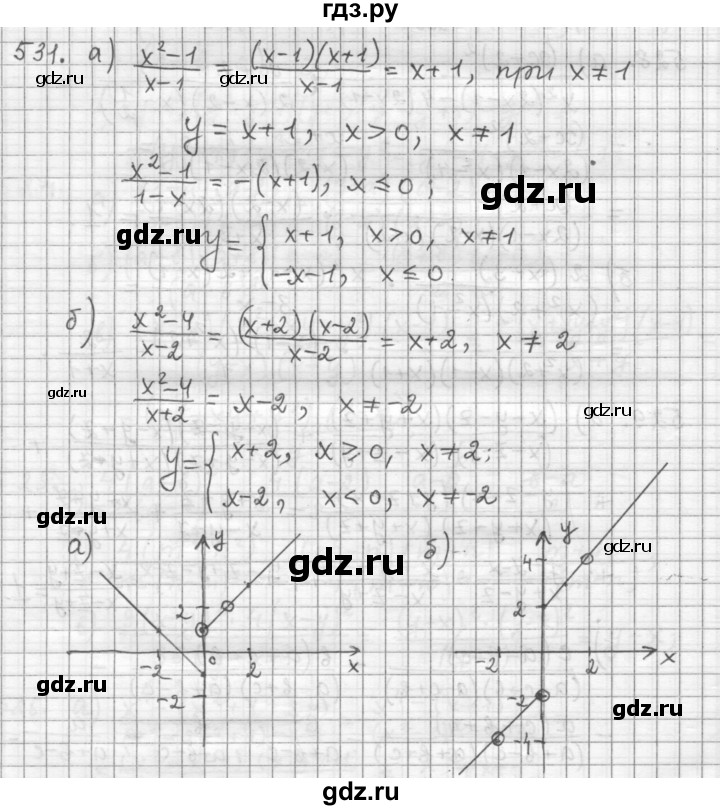 гдз.ру
531. а) (x²-1)/(x-1) = ((x-1)(x+1))/(x-1) = x+1, при x≠1
gdz.ru gdz.ru gdz.ru
y = x+1, x>0, x≠1
(x²-1)/(1-x) = -(x+1), x≤0;
gdz.ru
gdz.ru
y = { x+1, x>0, x≠1
-x-1, x≤0.
б) (x²-4)/(x-2) = ((x+2)(x-2))/(x-2) = x+2, x≠2
gdz.ru
(x²-4)/(x+2) = x-2, x≠-2
gdz.ru
y = { x+2, x⩾0, x≠2;
x-2, x<0, x≠-2
gdz.ru
а) y б) y
gdz.ru gdz.ru
4
2 2
0
-2 2 x -2 2 x
gdz.ru
-2 -2
gdz.ru
-4
gdz.ru